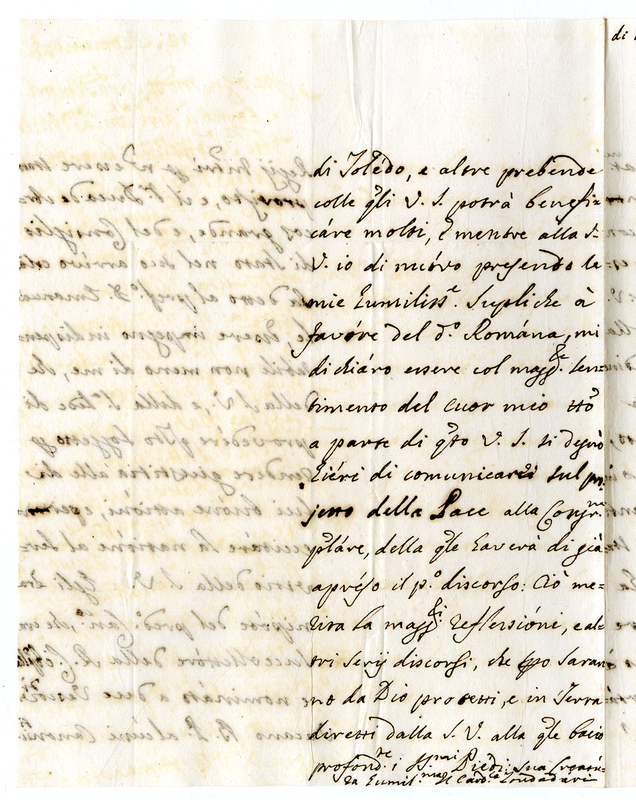 di
di Tolédo, e altre prebende
colle qli V. S. potrà benefi=
cáre molti, e mentre alla S.
V. io di nuóvo presendo le
mie humilissᵉ. Supliche à
favóre del dᵒ. Romána, mi
dichiáro essere col maggʳᵉ. sen=
timento del cuor mio tto
a parte di qto V. S. si degnò
hiéri di comunicarci sul pro
jetto della Pace alla Congrⁿᵉ.
pláre, della qle haverà di già
apréso il pᵒ. discorso: Ciò me=
rita la maggʳⁱ. reflessióni, e al=
tri serij discorsi, che saran
no da Dio protetti, e in Terra
diretti dalla S. V. alla qle bacio
profondᵗᵉ. i SSᵐⁱ Piedi. Sua Creatú=
ra humilᵐᵃ. Il Cardᵉ. Zondadári